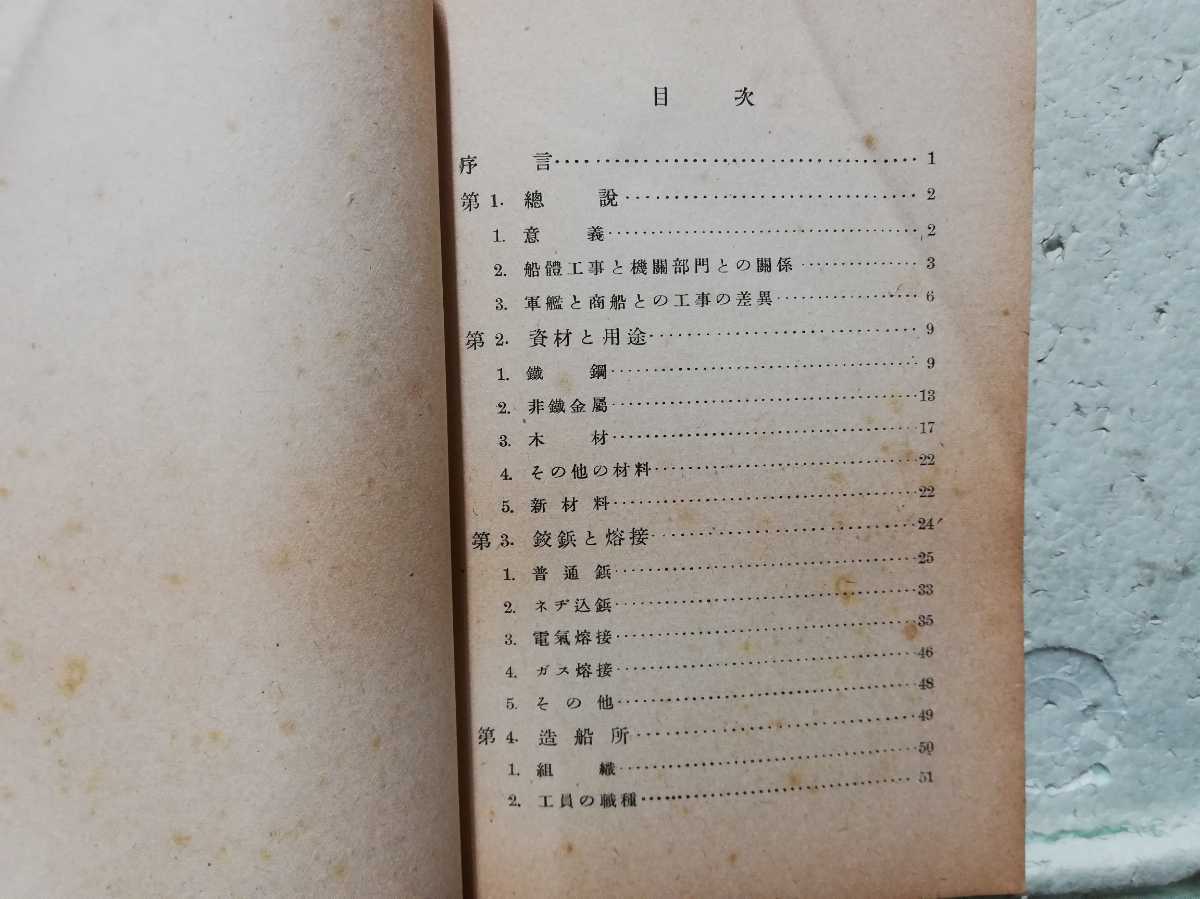 目次
序言 1
第1. 總說 2
1. 意義 2
2. 船體工事と機關部門との關係 3
3. 軍艦と商船との工事の差異 6
第2. 資材と用途 9
1. 鐵鋼 9
2. 非鐵金屬 13
3. 木材 17
4. その他の材料 22
5. 新材料 22
第3. 鉸鋲と熔接 24
1. 普通鋲 25
2. ネヂ込鋲 33
3. 電氣熔接 35
4. ガス熔接 46
5. その他 48
第4. 造船所 49
1. 組織 50
2. 工員の職種 51